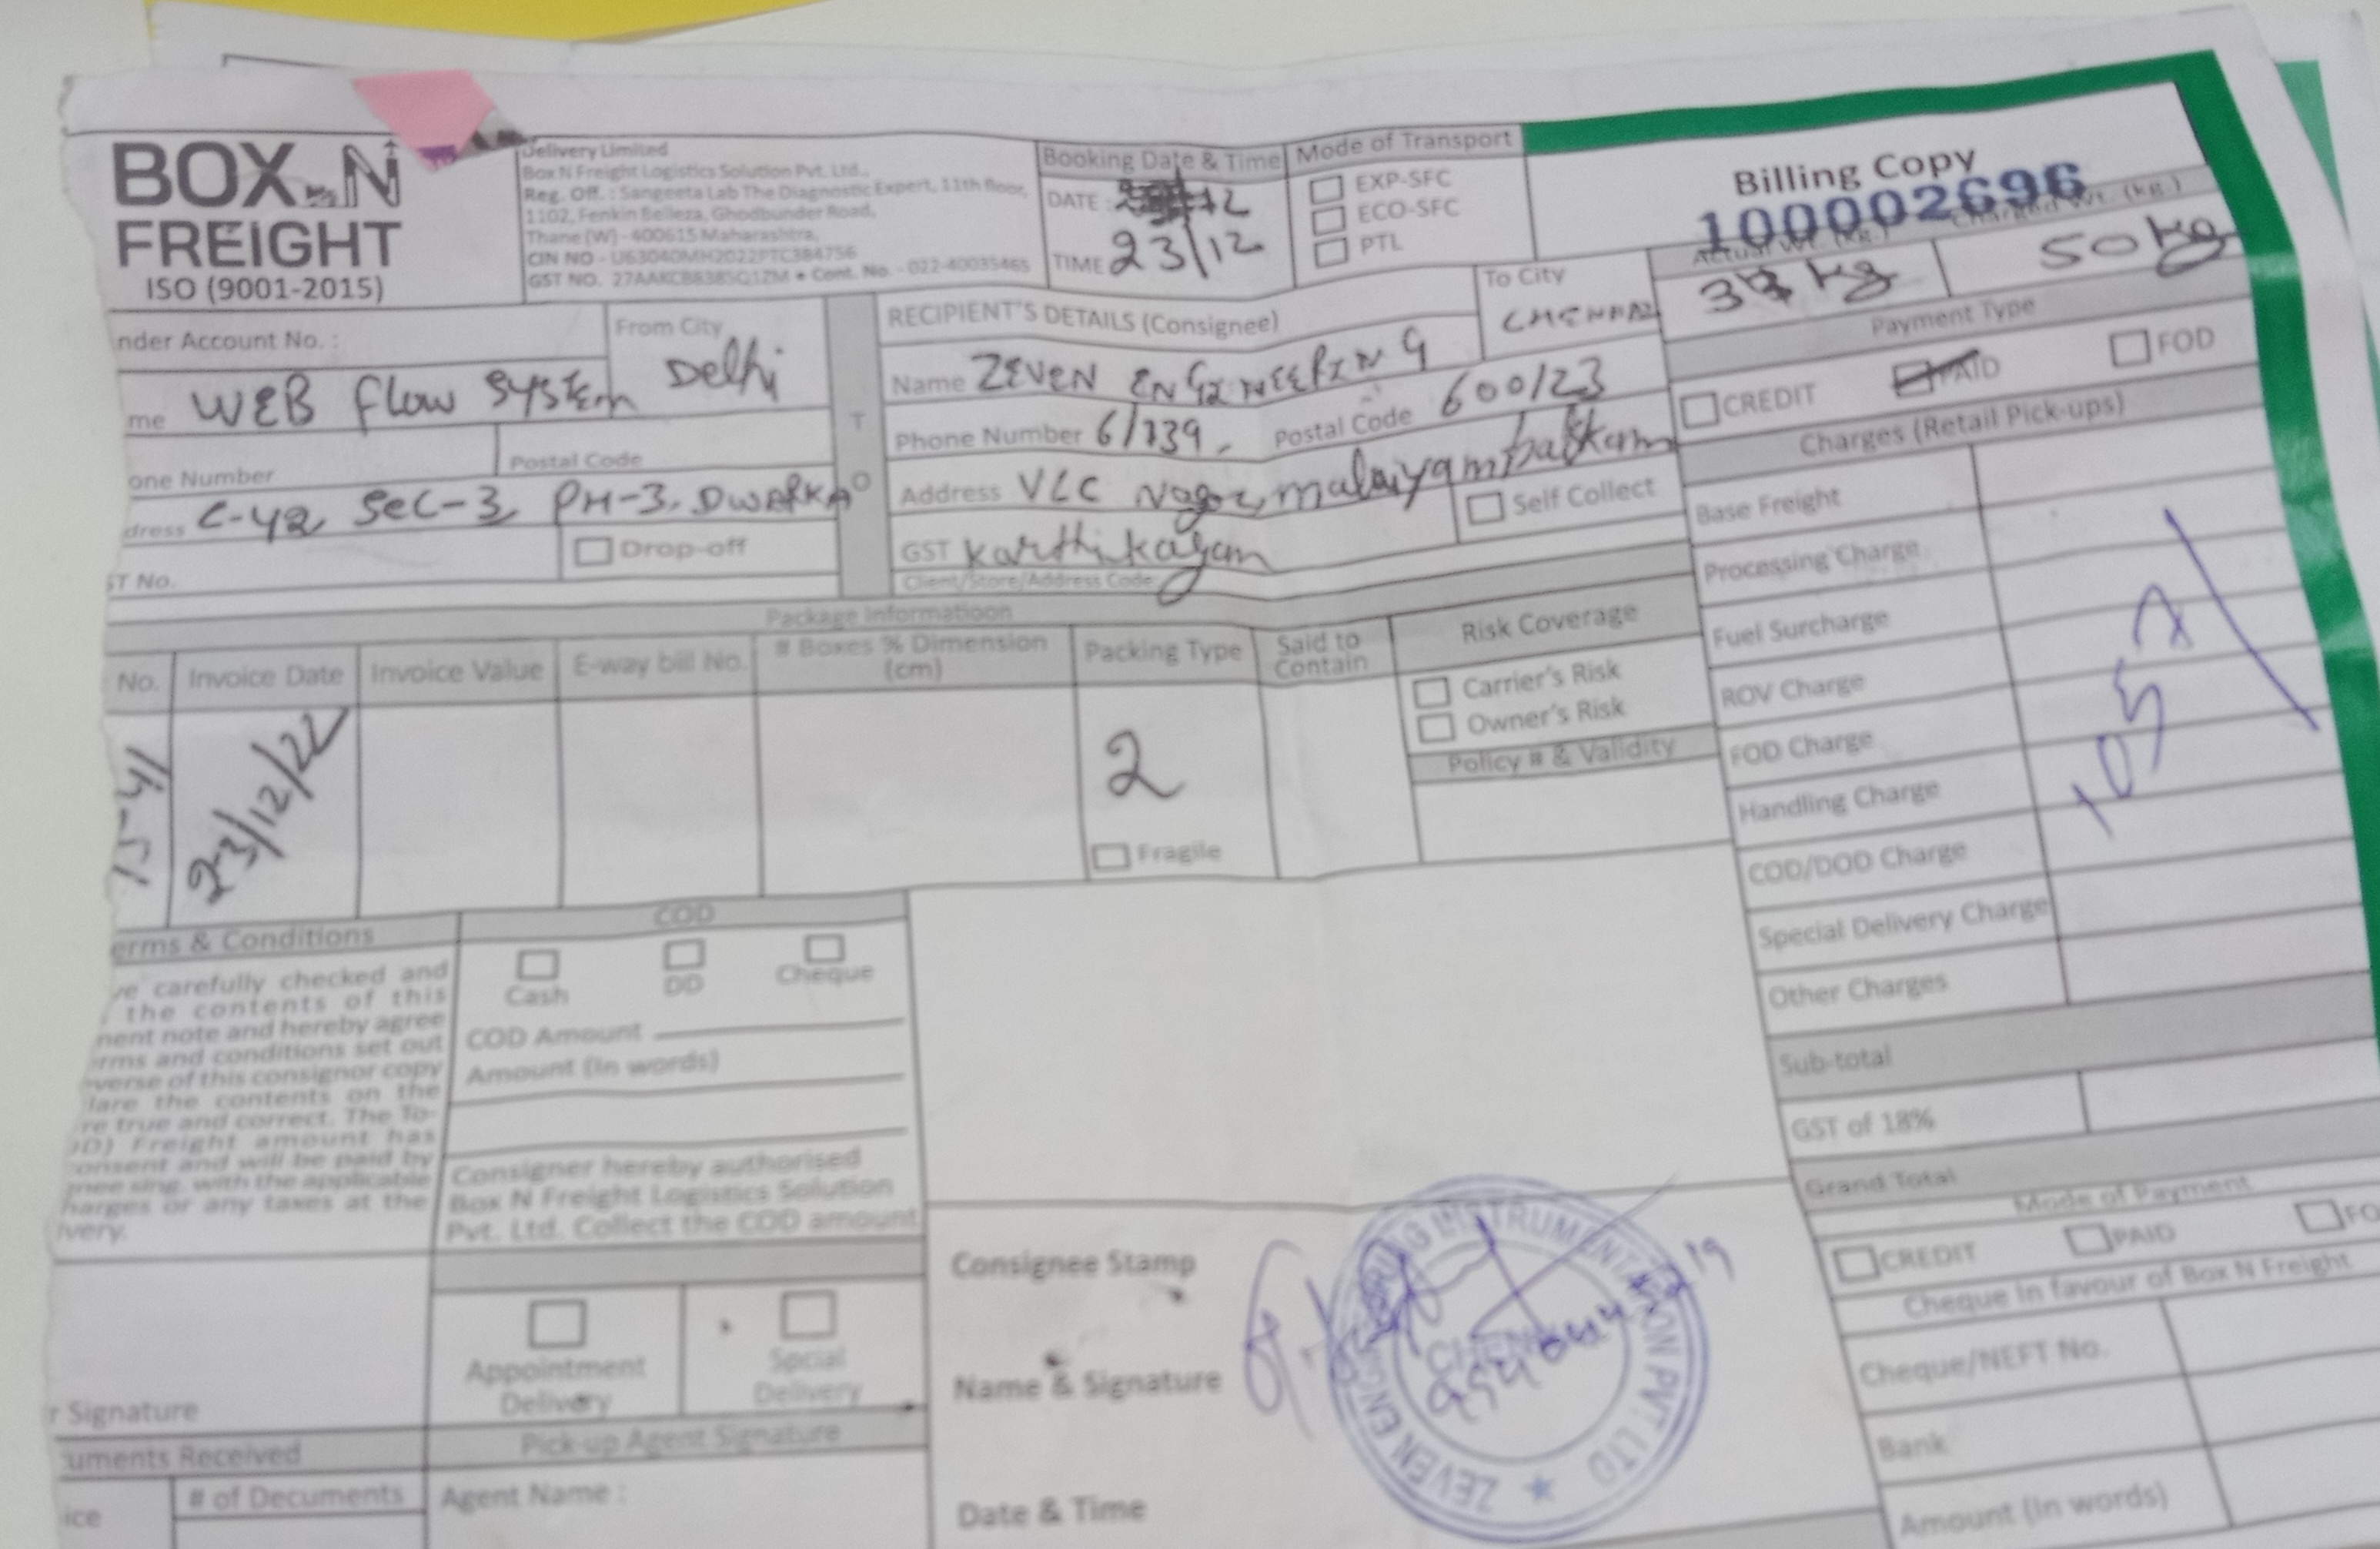 BOX N
FREIGHT
ISO (9001-2015)
Delivery Limited
Box N Freight Logistics Solution Pvt. Ltd.,
Reg. Off. : Sangeeta Lab The Diagnostic Expert, 11th floor,
1102, Fenkin Belleza, Ghodbunder Road,
Thane (W) - 400615 Maharashtra,
CIN NO - U63040MH2022PTC384756
GST NO. 27AAKCB8385Q1ZM • Cont. No. - 022-40035465
Booking Date & Time
DATE :
TIME 23/12
Mode of Transport
EXP-SFC
ECO-SFC
PTL
Billing Copy
100002696
Actual Wt. (kg.) Charged Wt. (kg.)
kg 50 kg
nder Account No. :
From City
Delhi
me WEB Flow SYSTEM
one Number
Postal Code
dress C-42, SEC-3, PH-3, DWARKA
Drop-off
ST No.
TO
RECIPIENT'S DETAILS (Consignee)
To City
CHENNAI
Name ZEVEN ENGINEERING
Phone Number 6/339, Postal Code 600123
Address VLC Nagar, malaiyambakkam
Self Collect
GST Karthikayan
Client/Store/Address Code
Payment Type
CREDIT PAID FOD
Charges (Retail Pick-ups)
Base Freight
Processing Charge
Fuel Surcharge
ROV Charge
FOD Charge
Handling Charge
COD/DOD Charge
Special Delivery Charge
Other Charges
Sub-total
GST of 18%
Grand Total
Mode of Payment
CREDIT PAID FO
Cheque in favour of Box N Freight
Cheque/NEFT No.
Bank
Amount (In words)
Package Informatioon
No. Invoice Date Invoice Value E-way bill No. # Boxes % Dimension (cm) Packing Type Said to Contain
23/12/22
2
Fragile
Risk Coverage
Carrier's Risk
Owner's Risk
Policy # & Validity
erms & Conditions
ve carefully checked and
the contents of this
ment note and hereby agree
erms and conditions set out
verse of this consignor copy
lare the contents on the
re true and correct. The To-
OD) Freight amount has
onsent and will be paid by
nee sing. with the applicable
harges or any taxes at the
ivery.
COD
Cash DD Cheque
COD Amount
Amount (In words)
Consigner hereby authorised
Box N Freight Logistics Solution
Pvt. Ltd. Collect the COD amount
Appointment
Delivery
Spcial
Delivery
r Signature
uments Received
ice
# of Decuments
Pick-up Agent Signature
Agent Name :
Consignee Stamp
Name & Signature
Date & Time
ZEVEN ENGINEERING INSTRUMENTATION PVT LTD